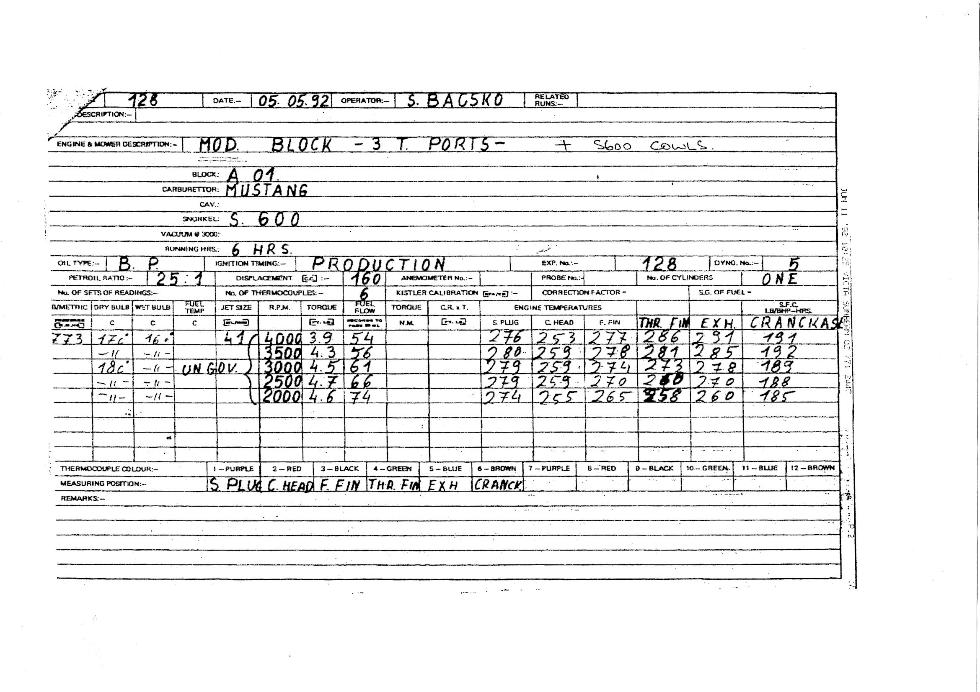 128 DATE:- 05.05.92 OPERATOR:- S. BACSKO RELATED RUNS:-
DESCRIPTION:-
ENGINE & MOWER DESCRIPTION:- MOD. BLOCK - 3 T. PORTS - + S600 COWLS.
BLOCK: A 01.
CARBURETTOR: MUSTANG
CAV.:
SNORKEL: S. 600
VACUUM @ 3000:
RUNNING HRS.: 6 HRS.
OIL TYPE:- B. P. IGNITION TIMING:- PRODUCTION EXP. No.:- 128 DYNO. No.:- 5
PETROIL RATIO:- 25:1 DISPLACEMENT :- 160 ANEMOMETER No.:- PROBE No.:- No. OF CYLINDERS ONE
No. OF SETS OF READINGS:- No. OF THERMOCOUPLES:- 6 KISTLER CALIBRATION :- CORRECTION FACTOR - S.G. OF FUEL -
DRY BULB WET BULB FUEL TEMP JET SIZE R.P.M. TORQUE FUEL FLOW TORQUE C.R. x T. ENGINE TEMPERATURES S.F.C. LB/BHP-HRS.
C C C N.M. S. PLUG C. HEAD F. FIN THR. FIN EXH. CRANCKASE
773 17c 16° 41 4000 3.9 54 276 253 277 286 291 191
-11 -11- 3500 4.3 56 280 259 278 281 285 192
18c -11- UNGOV. 3000 4.5 61 279 259 274 273 278 189
-11- -11- 2500 4.7 66 279 259 270 270 188
-11- -11- 2000 4.6 74 274 255 265 258 260 185
THERMOCOUPLE COLOUR:- 1-PURPLE 2-RED 3-BLACK 4-GREEN 5-BLUE 6-BROWN 7-PURPLE 8-RED 9-BLACK 10-GREEN. 11-BLUE 12-BROWN
MEASURING POSITION:- S. PLUG C. HEAD F. FIN THR. FIN EXH CRANCK
REMARKS:-